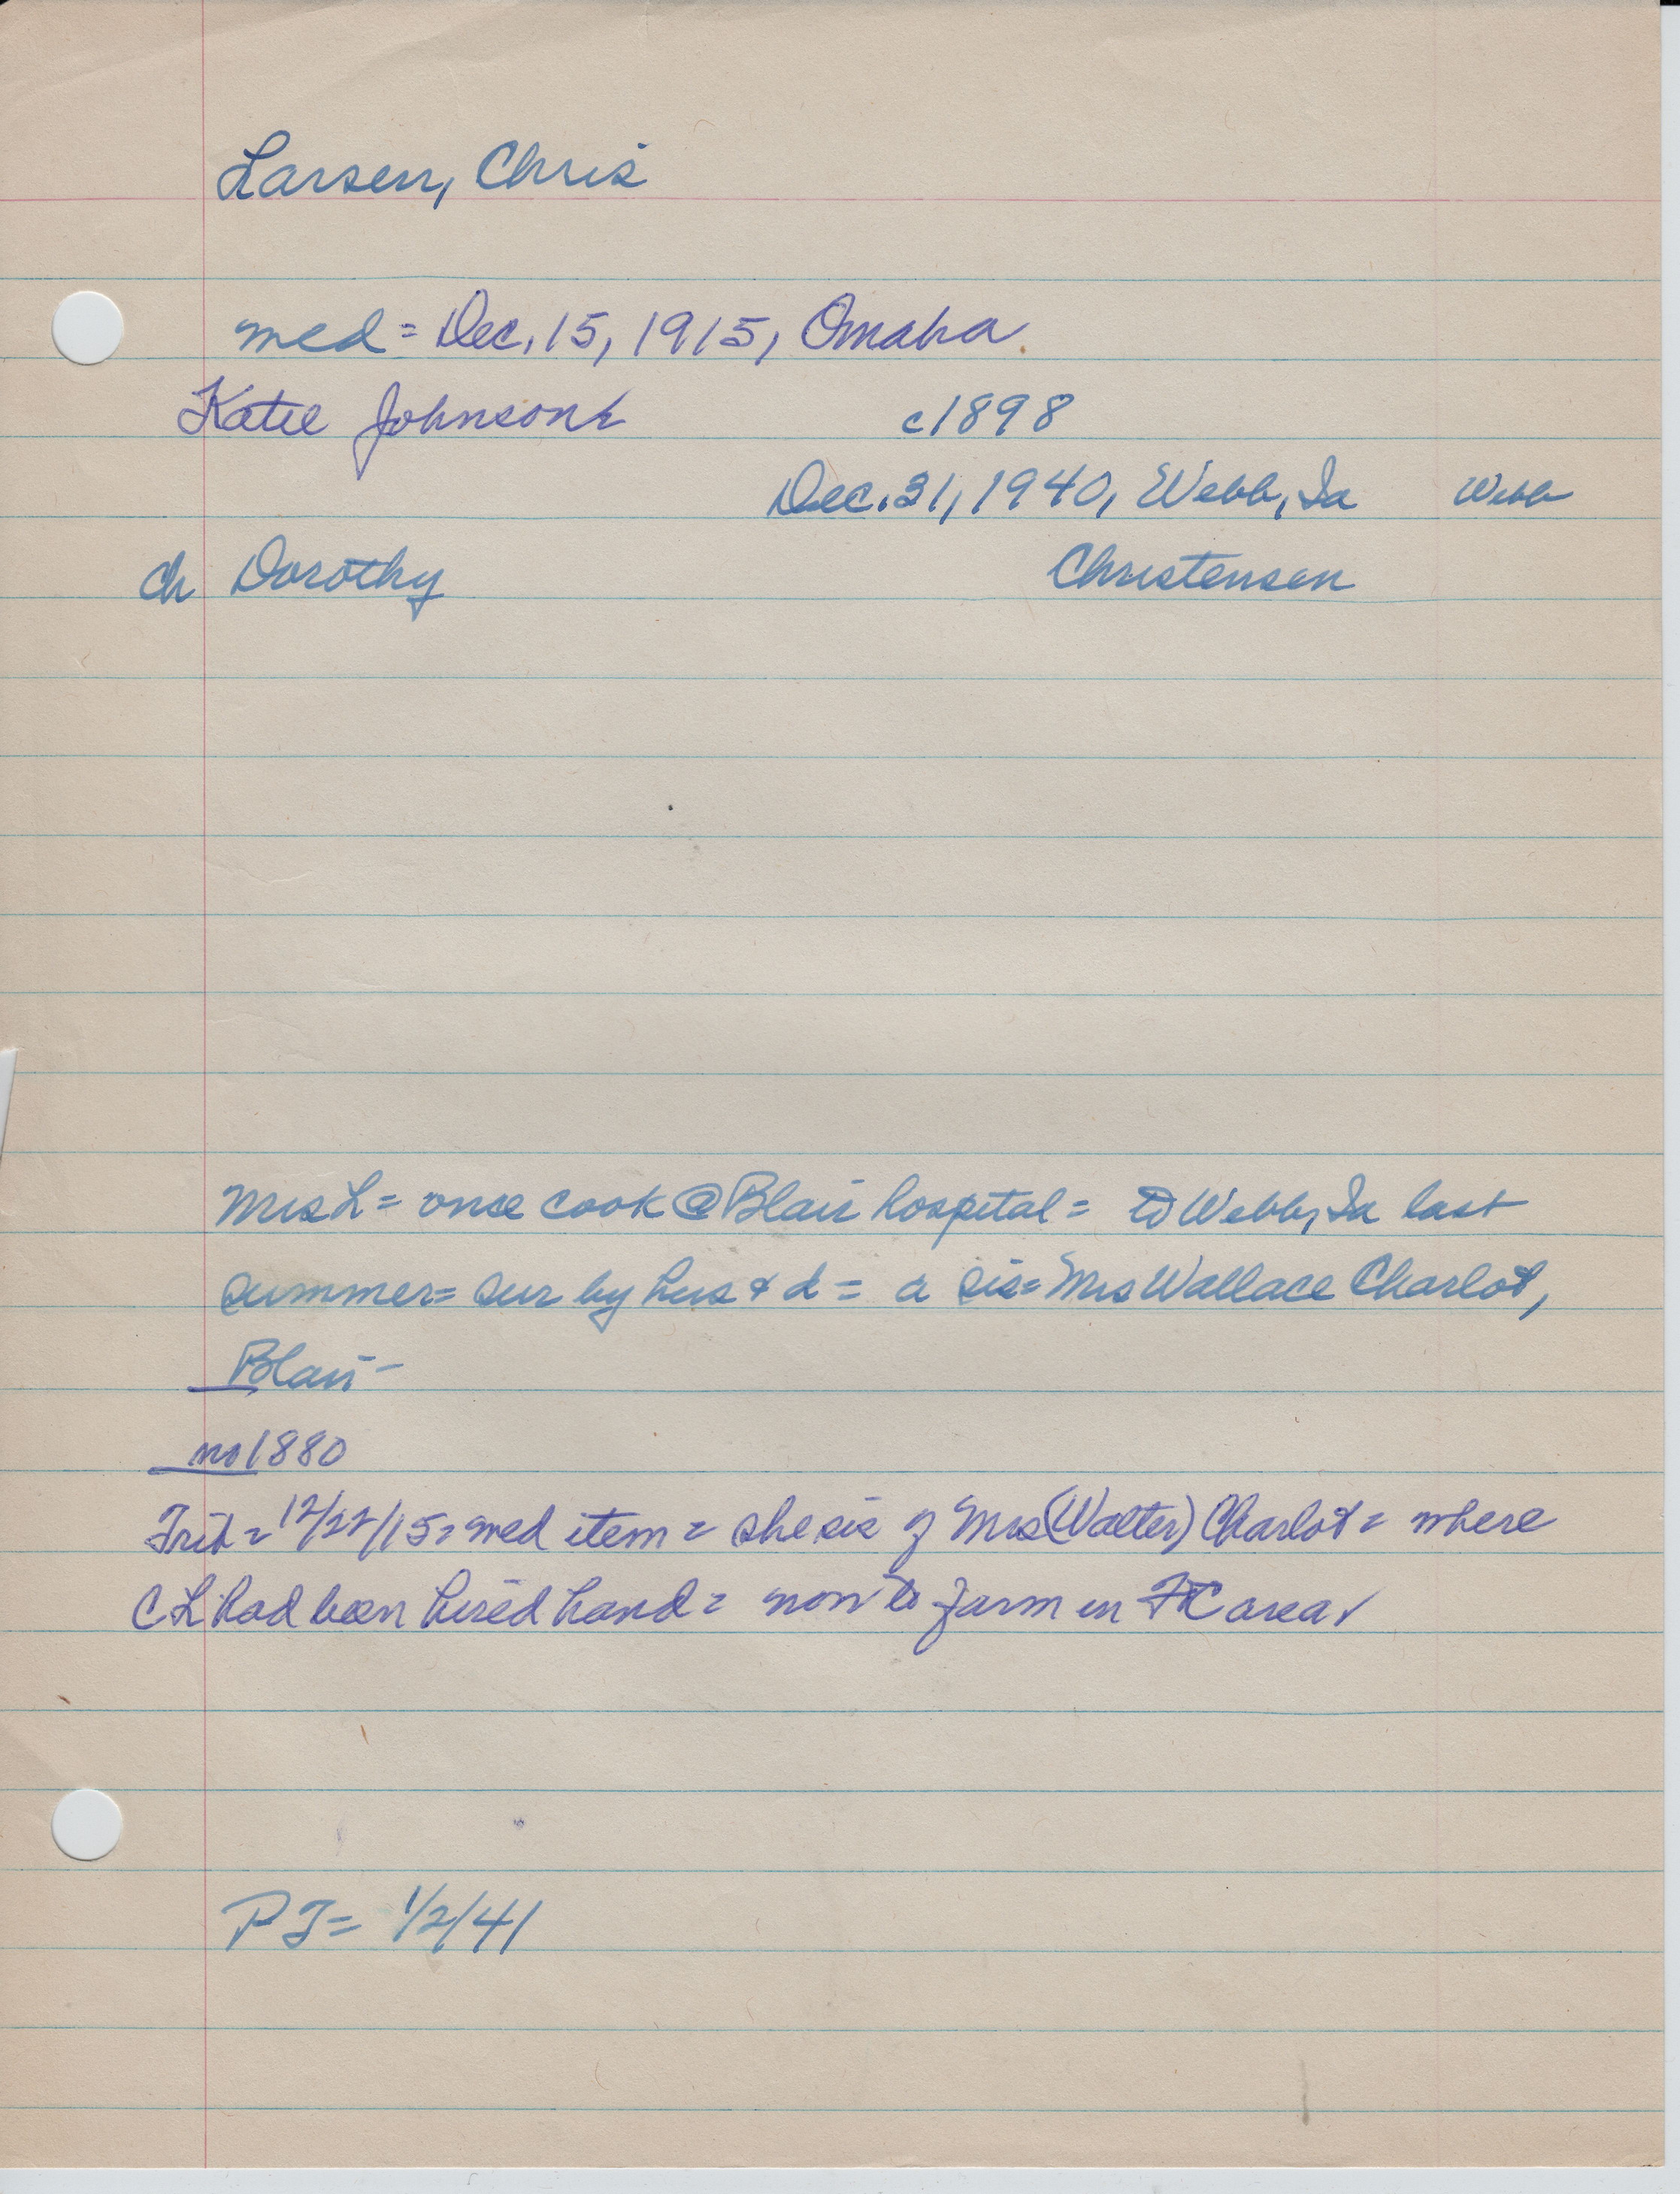 Larsen, Chris
med = Dec. 15, 1915, Omaha
Katie Johnson c1898
Dec. 31, 1940, Webb, Ia Webb
ch Dorothy Christensen
Mrs L = once cook @ Blair hospital = to Webb, Ia last
summer = sur by hus & d = a sis = Mrs Wallace Charlot,
Blair -
no 1880
Trib = 12/22/15 = med item = she sis of Mrs (Walter) Charlot = where
CL had been hired hand = now to farm in FC area
PT = 1/2/41